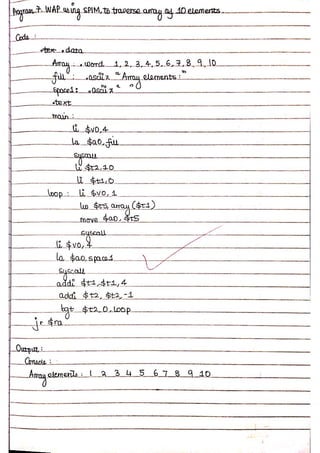 Program 7. WAP using SPIM, to traverse array of 10 elements.
Code :
.data
Array : .word 1, 2, 3, 4, 5, 6, 7, 8, 9, 10
fill : .asciiz "Array elements : "
space1 : .asciiz " "
.text
main :
li $v0, 4
la $a0, fill
syscall
li $t2, 10
li $t1, 0
loop : li $v0, 1
lw $t5, array ($t1)
move $a0, $t5
syscall
li $v0, 4
la $a0, space1
syscall
addi $t1, $t1, 4
addi $t2, $t2, -1
bgt $t2, 0, loop
jr $ra
Output :
Console :
Array elements : 1 2 3 4 5 6 7 8 9 10